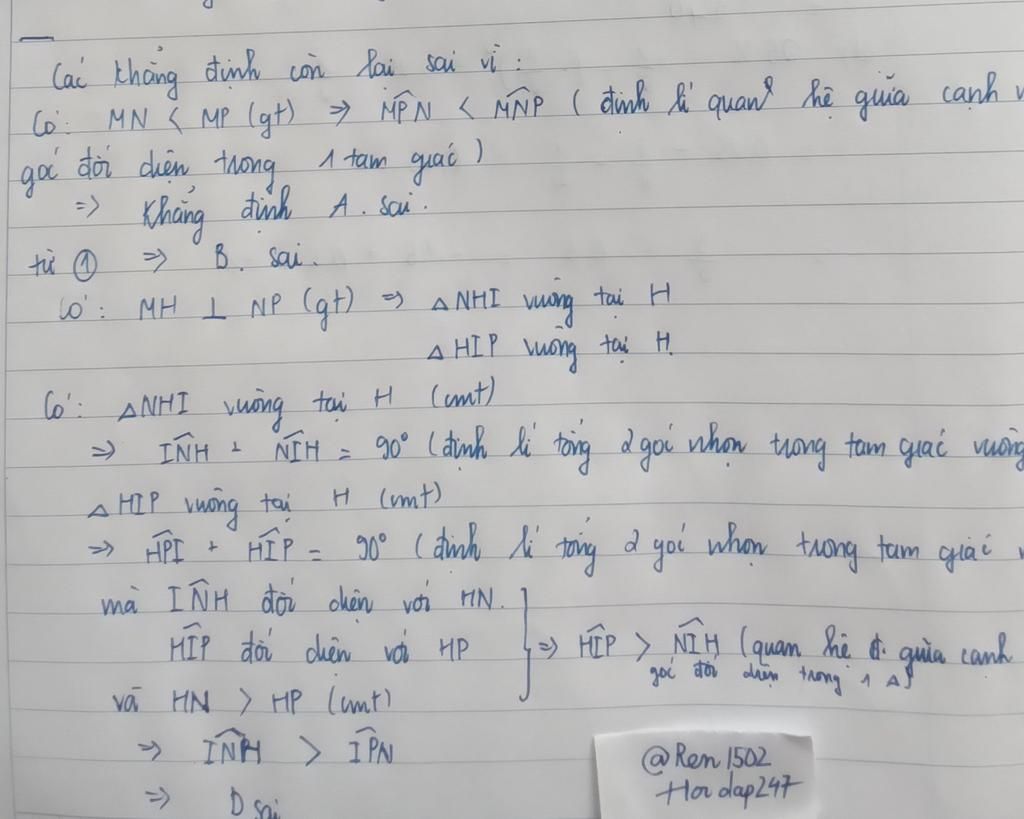 Các khẳng định còn lại sai vì :
Có: MN < MP (gt) => MPN < MNP ( định lí quan hệ giữa cạnh v
góc đối diện trong 1 tam giác )
=> Khẳng định A. sai.
từ ① => B. sai.
Có: MH ⊥ NP (gt) => △NHI vuông tại H
△HIP vuông tại H.
Có: △NHI vuông tại H (cmt)
=> INH + NIH = 90° ( định lí tổng 2 góc nhọn trong tam giác vuông
△HIP vuông tại H (cmt)
=> HPI + HIP = 90° ( định lí tổng 2 góc nhọn trong tam giác v
mà INH đối diện với HN.
HIP đối diện với HP
và HN > HP (cmt)
=> HIP > NIH (quan hệ giữa cạnh
góc đối diện trong 1 △)
=> INH > IPN
=> D sai
@Ren1502
Hoidap247